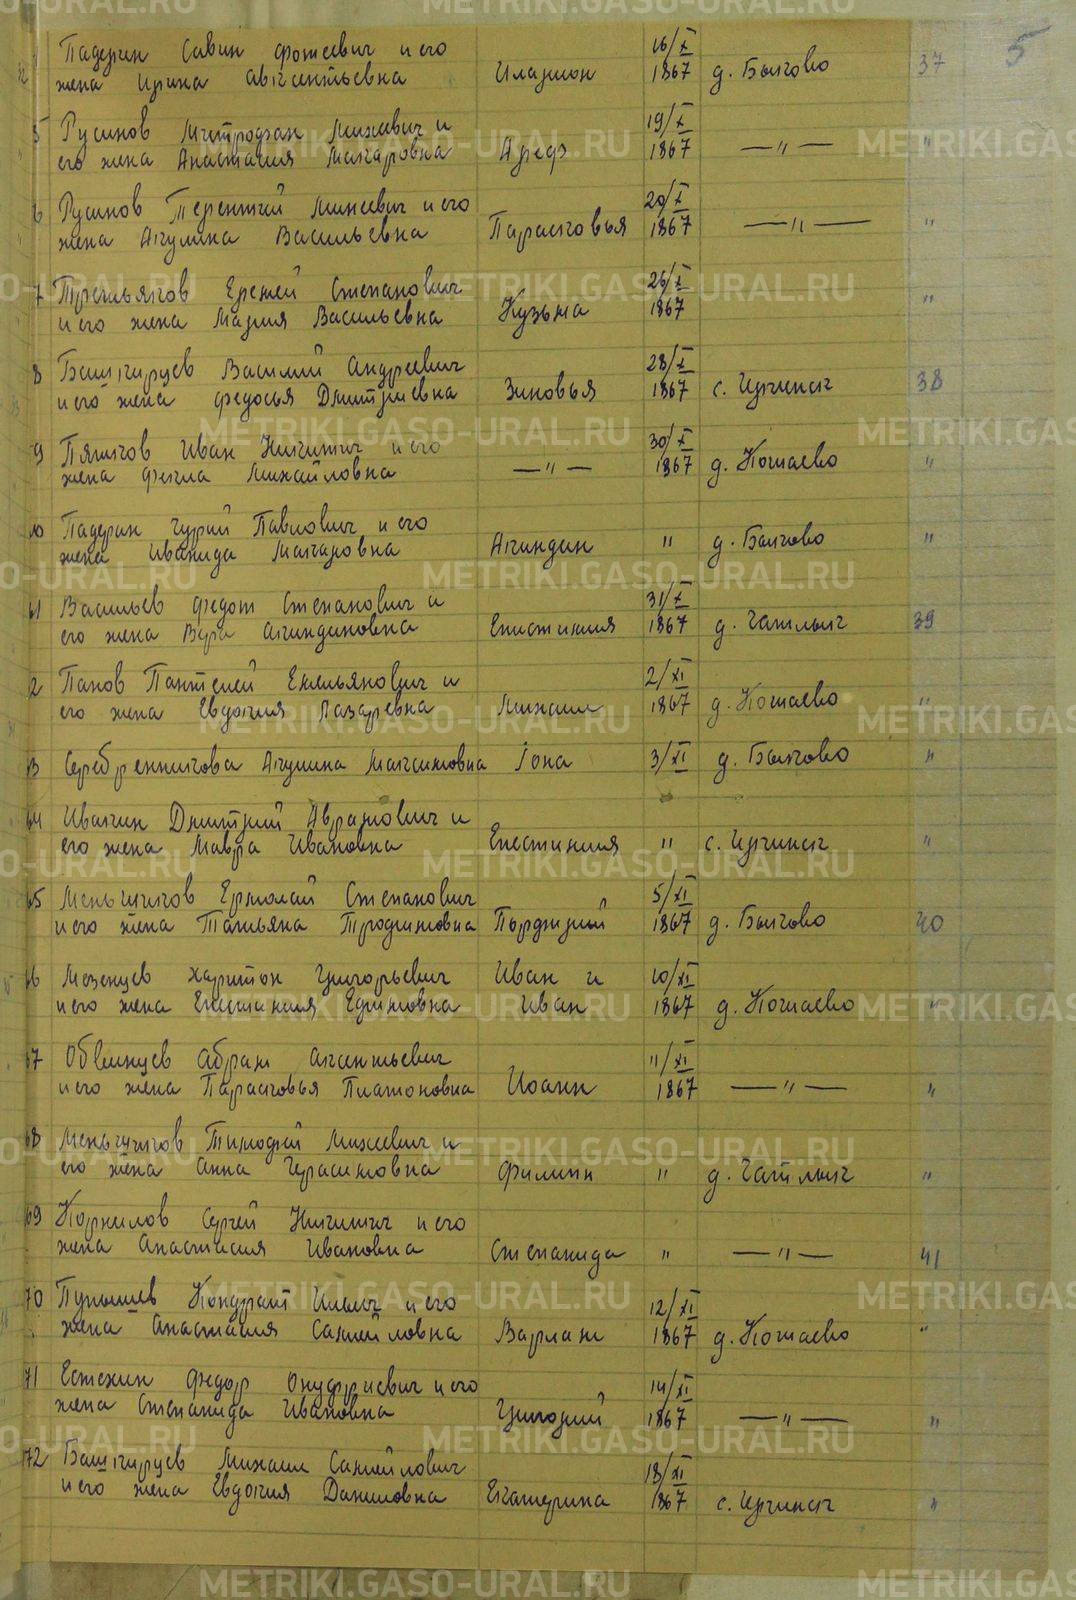 5
Падерин Савин Фотеевич и его
жена Ирина Авксентьевна Иларион 16/X 1867 д. Быково 37
Русинов Митрофан Михеевич и
его жена Анастасия Макаровна Ареф 19/X 1867 —"—
6 Русинов Терентий Михеевич и его
жена Акулина Васильевна Парасковья 20/X 1867 —"— "
7 Третьяков Еремей Степанович
и его жена Мария Васильевна Кузьма 26/X 1867 "
8 Башкирцев Василий Андреевич
и его жена Федосья Дмитриевна Зиновья 28/X 1867 с. Иргинск 38
9 Пятков Иван Никитич и его
жена Фекла Михайловна —"— 30/X 1867 д. Кошаево "
Падерин Гурий Павлович и его
жена Иванида Макаровна Акиндин " д. Быково "
61 Васильев Федот Степанович и
его жена Вера Акиндиновна Епистиния 31/X 1867 д. Чатлык 39
2 Панов Пантелей Емельянович и
его жена Евдокия Лазаревна Михаил 2/XI 1867 д. Кошаево "
3 Серебренникова Акулина Максимовна Iона 3/XI д. Быково "
64 Ивакин Дмитрий Аврамович и
его жена Мавра Ивановна Епестиния " с. Иргинск "
65 Меньшиков Ермолай Степанович
и его жена Татьяна Трофимовна Порфирий 5/XI 1867 д. Быково 40
66 Мезенцев Харитон Григорьевич Иван и
и его жена Епистиния Ефимовна Иван 10/XI 1867 д. Кошаево "
67 Обвинцев Абрам Акентьевич
и его жена Парасковья Платоновна Иоанн 11/XI 1867 —"— "
68 Меньшиков Тимофей Михеевич и
его жена Анна Герасимовна Филипп " д. Чатлык "
69 Корнилов Сергей Никитич и его
жена Анастасия Ивановна Степанида " —"— 41
70 Пупышев Кондрат Ильич и его
жена Анастасия Самойловна Варлам 12/XI 1867 д. Кошаево "
71 Естехин Федор Онуфриевич и его
жена Степанида Ивановна Григорий 14/XI 1867 —"— "
72 Башкирцев Михаил Самойлович
и его жена Евдокия Даниловна Екатерина 18/XI 1867 с. Иргинск "
METRIKI.GASO-URAL.RU